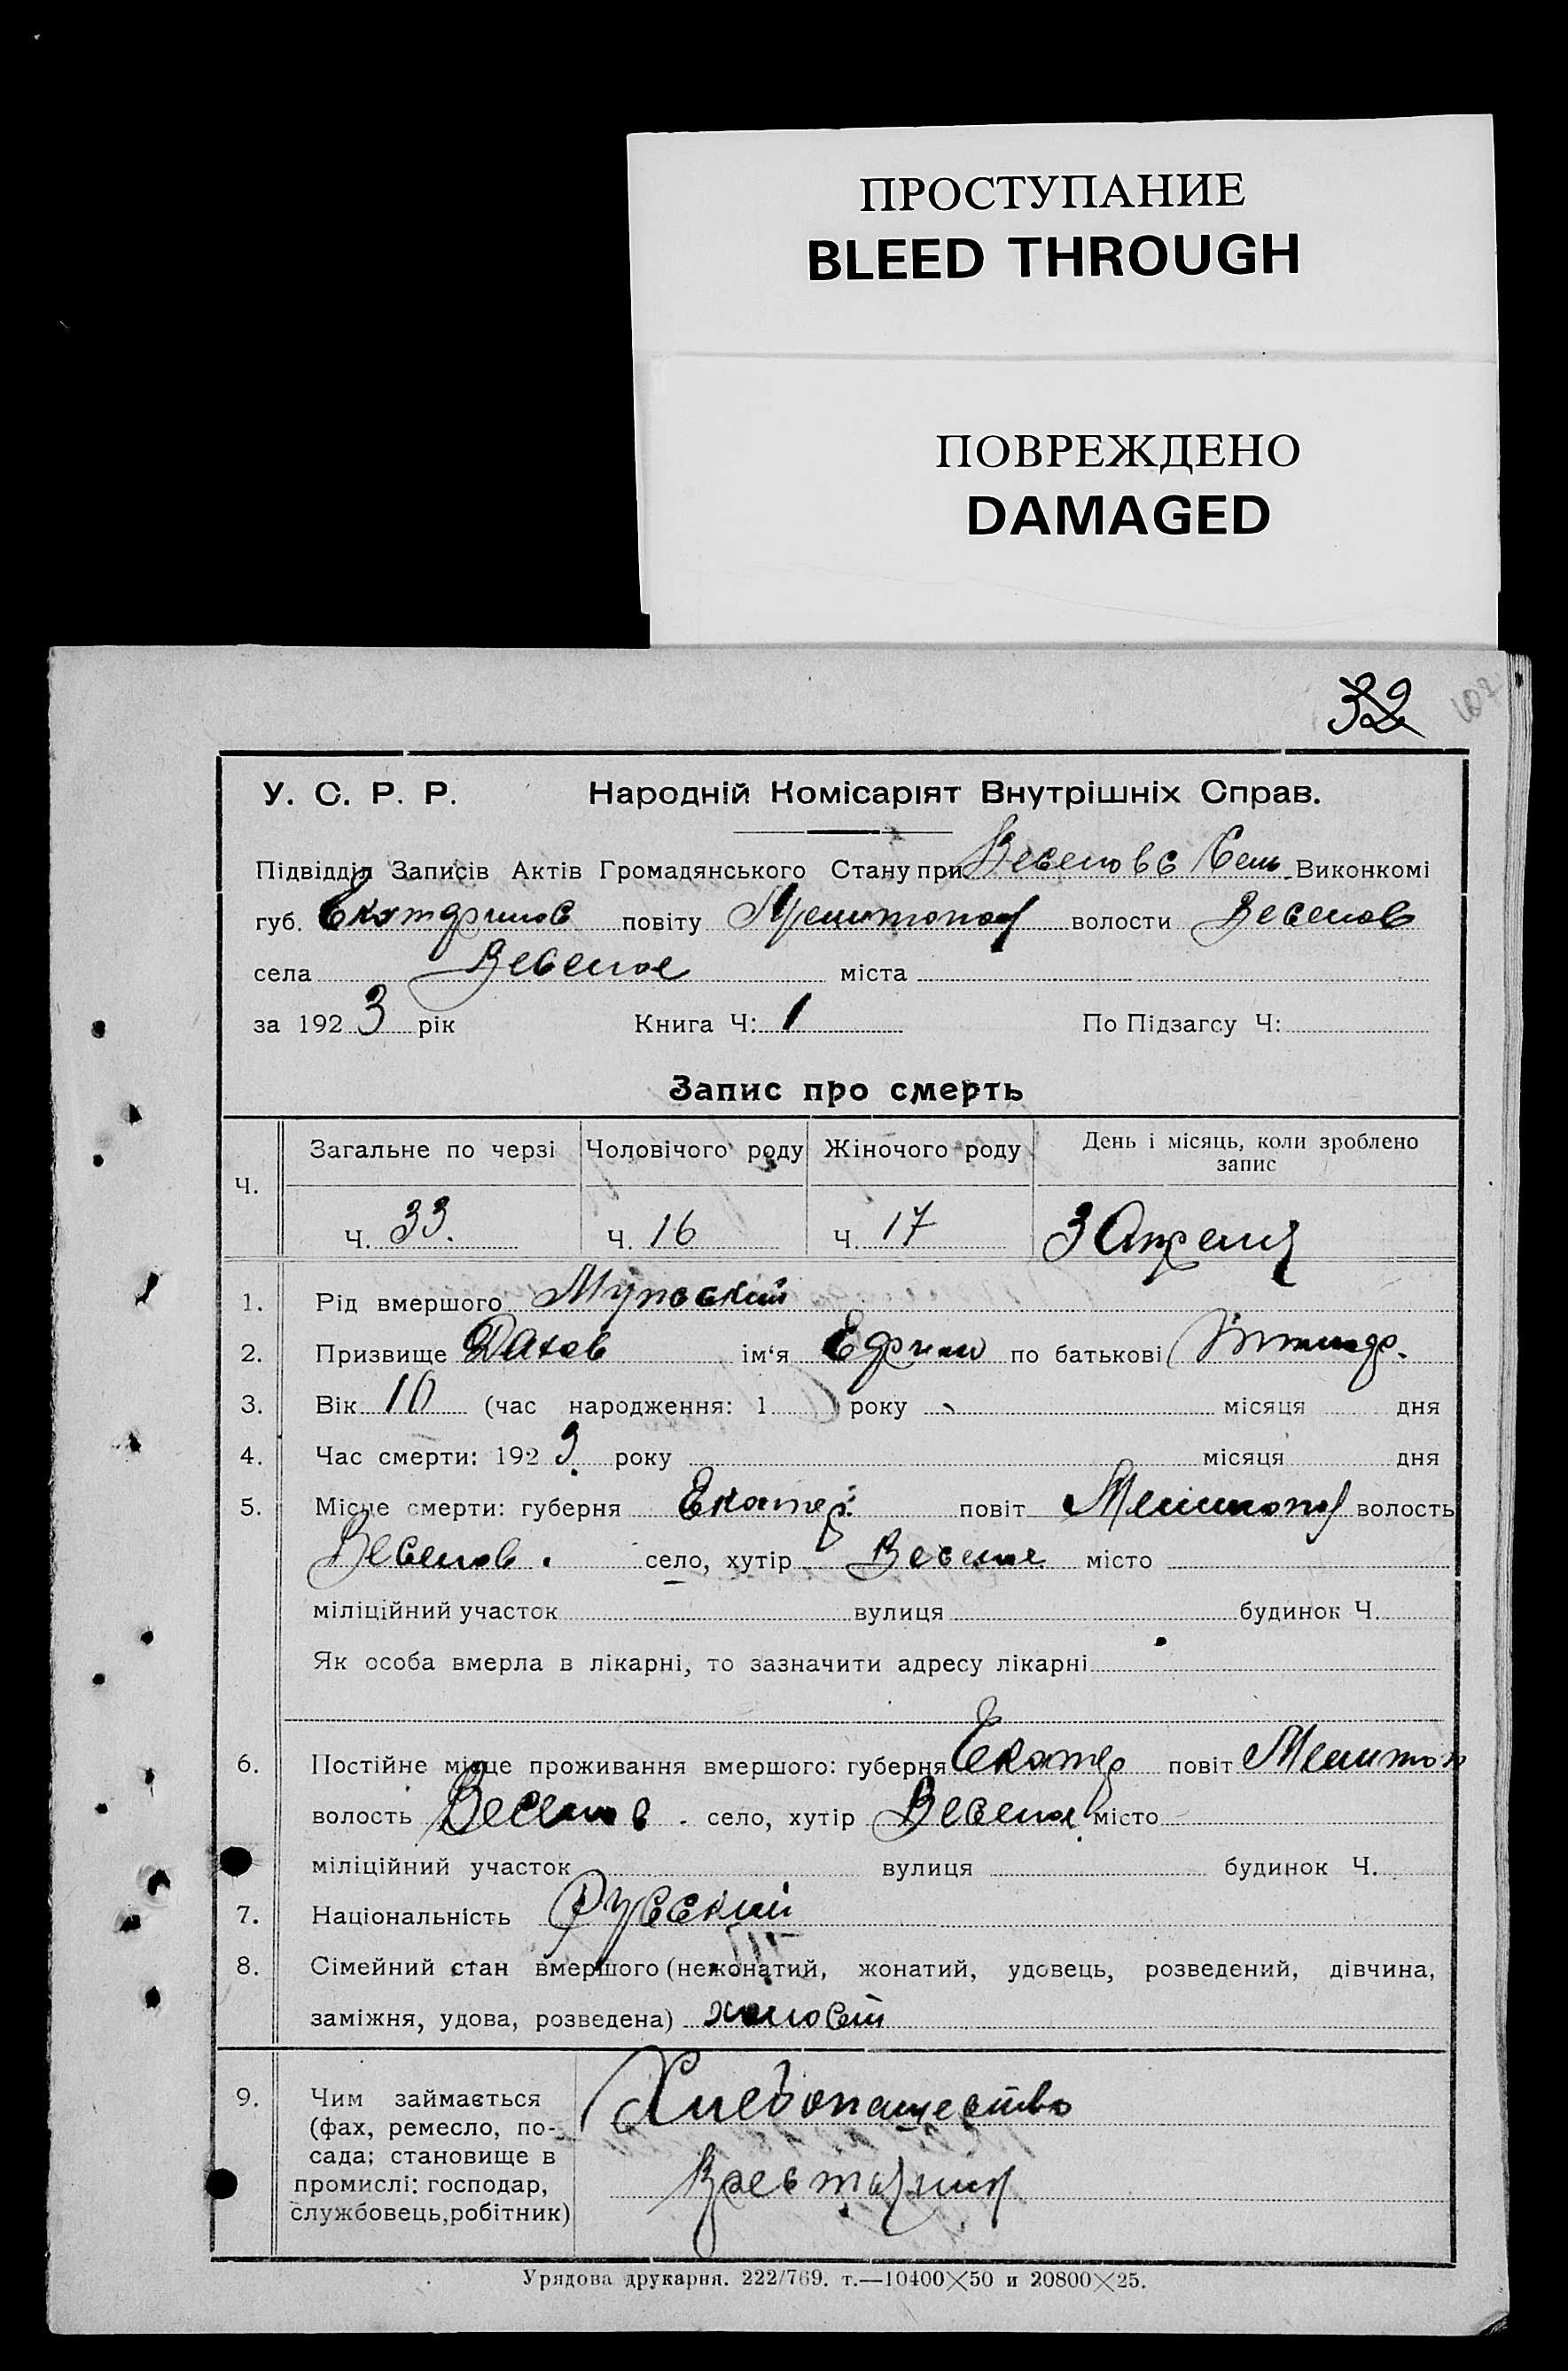 ПРОСТУПАНИЕ
BLEED THROUGH
ПОВРЕЖДЕНО
DAMAGED
32
У. С. Р. Р. Народній Комісаріят Внутрішніх Справ.
Підвідділ Записів Актів Громадянського Стану при Веселовс Сель. Виконкомі
губ. Екатеринос повіту Мелитопол волости Веселов
села Веселое міста
за 1923 рік Книга Ч: 1 По Підзагсу Ч:
Запис про смерть
Ч. Загальне по черзі Чоловічого роду Жіночого роду День і місяць, коли зроблено запис
Ч. 33. Ч. 16 Ч. 17 3 Апреля
1. Рід вмершого Мужской
2. Призвище ім‘я по батькові
3. Вік 10 (час народження: 1 року місяця дня
4. Час смерти: 1923 року місяця дня
5. Місце смерти: губерня Екатер. повіт Мелитопол волость
Веселов. село, хутір Веселое місто
міліційний участок вулиця будинок Ч.
Як особа вмерла в лікарні, то зазначити адресу лікарні
6. Постійне місце проживання вмершого: губерня Екатер повіт Мелитоп
волость Веселов. село, хутір Веселое місто
міліційний участок вулиця будинок Ч.
7. Національність Русский
8. Сімейний стан вмершого (нежонатий, жонатий, удовець, розведений, дівчина,
заміжня, удова, розведена) холост
9. Чим займається Хлебопашество
(фах, ремесло, по-
сада; становище в
промислі: господар,
службовець,робітник)
Урядова друкарня. 222/769. т.—10400×50 и 20800×25.